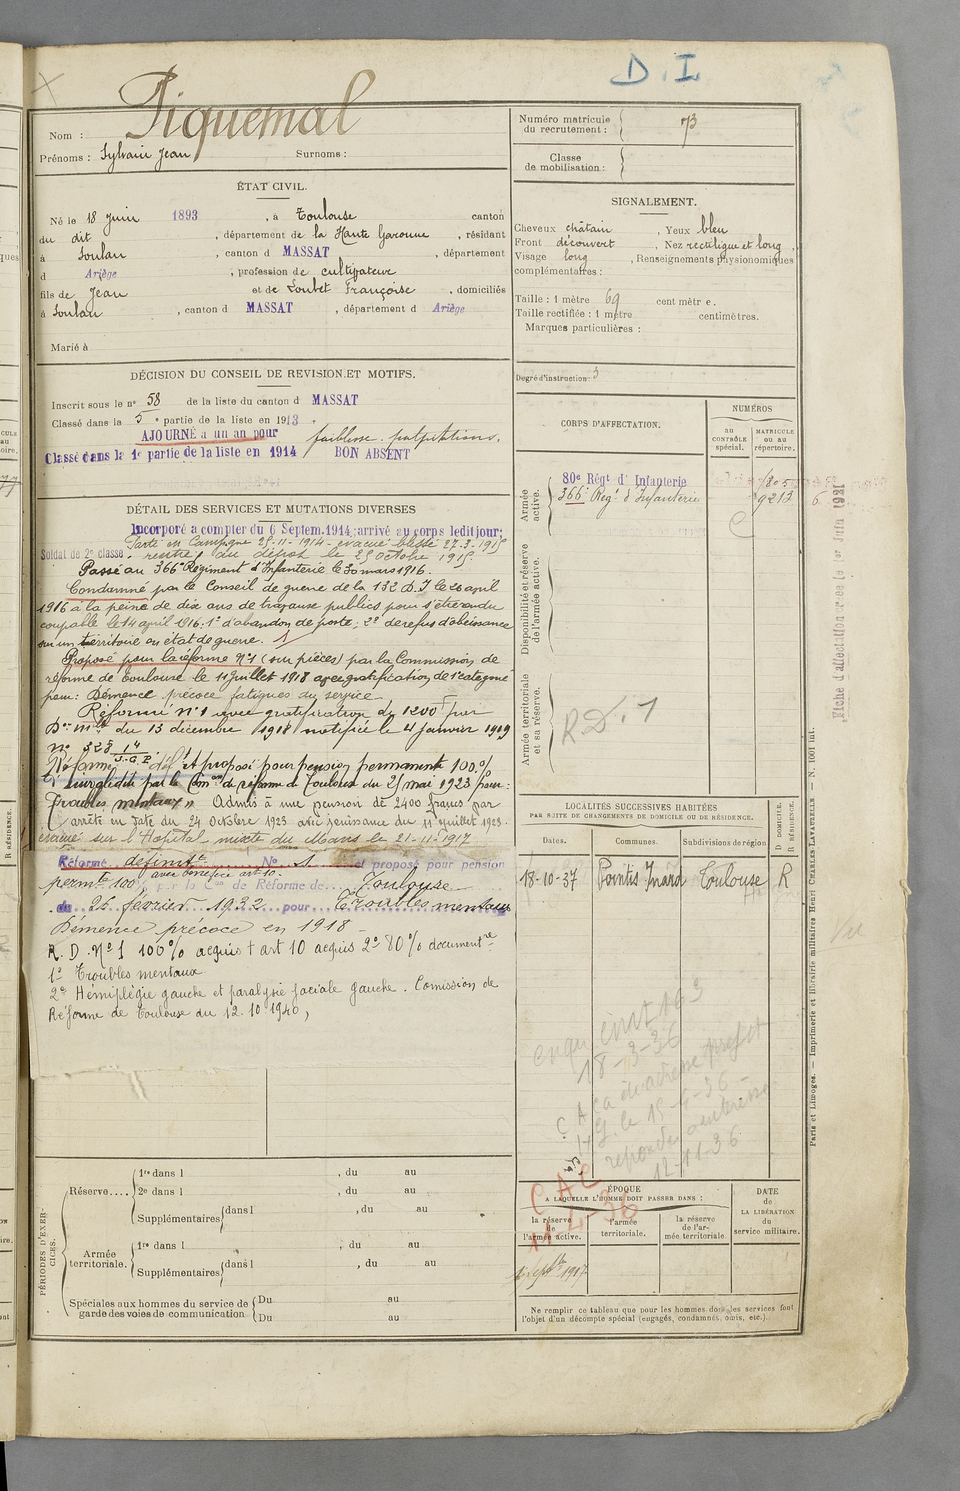 D. I.
Nom : Piquemal
Prénoms : Sylvain Jean Surnoms :
ÉTAT CIVIL.
Né le 18 juin 1893, à Toulouse canton
du dit, département de la Haute Garonne, résidant
à Soulan, canton d MASSAT, département
d Ariège, profession de cultivateur
fils de Jean et de Loubet Françoise, domiciliés
à Soulan, canton d MASSAT, département d Ariège
Marié à
DÉCISION DU CONSEIL DE REVISION ET MOTIFS.
Inscrit sous le nº 58 de la liste du canton d MASSAT
Classé dans la 5e partie de la liste en 1913.
AJOURNÉ à un an pour faiblesse. palpitations.
Classé dans la 1e partie de la liste en 1914 BON ABSENT
DÉTAIL DES SERVICES ET MUTATIONS DIVERSES
Incorporé à compter du 6 Septem. 1914, arrivé au corps ledit jour;
Soldat de 2e classe. Parti en Campagne 25-11-1914 - évacué blessé 27-3-1915
rentré au dépôt le 25 octobre 1915.
Passé au 366e Régiment d'Infanterie le 30 mars 1916.
Condamné par le Conseil de guerre de la 132 D.I le 26 april
1916 à la peine de dix ans de travaux publics pour s'être rendu
coupable le 14 april 1916. 1º d'abandon de poste; 2º de refus d'obéissance
sur un territoire en état de guerre.
Proposé pour la réforme nº1 (sur pièces) par la Commission de
réforme de Toulouse le 11 juillet 1918 avec gratification de 1e catégorie
pour: Démence précoce fatigues du service
Réformé nº1 avec gratification de 1200f par
Don mlle du 13 décembre 1918 notifiée le 4 janvier 1919
nº 328 14/S.G.P.
Réformé déf. et proposé pour pension permanente 100%
par la Com on de réforme de Toulouse du 25 mai 1923 pour:
"Troubles mentaux" Admis à une pension de 2400 francs par
arrêté en date du 24 Octobre 1923 avec jouissance du 11 juillet 1923.
évacué sur l'Hopital mixte du Mans le 21-11-1917
Réformé définitt Nº 1 et proposé pour pension
avec bénéfice art. 10.
permte 100% par la Con de Réforme de Toulouse
du 26 février 1932 pour Troubles mentaux
Démence précoce en 1918
R. D. Nº 1 100% acquis + art 10 acquis 2º 80% documentre
1º Troubles mentaux
2º Hémiplégie gauche et paralysie faciale gauche. Comission de
Réforme de Toulouse du 12.10.1940,
PÉRIODES D'EXERCICES.
Réserve.... 1re dans l , du au
2e dans l , du au
Supplémentaires dans l , du au
Armée territoriale. 1re dans l , du au
Supplémentaires dans l , du au
Spéciales aux hommes du service de garde des voies de communication Du au
Du au
Numéro matricule du recrutement : 73
Classe de mobilisation :
SIGNALEMENT.
Cheveux châtain, Yeux bleu
Front découvert, Nez rectiligne et long,
Visage long, Renseignements physionomiques
complémentaires :
Taille : 1 mètre 69 centimètre.
Taille rectifiée : 1 mètre centimètres.
Marques particulières :
Degré d'instruction : 3
CORPS D'AFFECTATION.
NUMÉROS
au CONTRÔLE spécial.
MATRICULE ou au répertoire.
Armée active.
80e Régt d'Infanterie
366e Regt d'Infanterie 9213
Disponibilité et réserve de l'armée active.
Armée territoriale et sa réserve.
R.D. 1
Fiche d'affectation créée le 1er Juin 1921
LOCALITÉS SUCCESSIVES HABITÉES
PAR SUITE DE CHANGEMENTS DE DOMICILE OU DE RÉSIDENCE.
Dates. Communes. Subdivisions de région D DOMICILE. R RÉSIDENCE.
18-10-37 Pointis Inard Toulouse R
18-3-36
12-11-36
CAC
ÉPOQUE
A LAQUELLE L'HOMME DOIT PASSER DANS :
la réserve de l'armée active.
l'armée territoriale.
la réserve de l'armée territoriale
DATE de LA LIBÉRATION du service militaire.
1917
Ne remplir ce tableau que pour les hommes dont les services font
l'objet d'un décompte spécial (engagés, condamnés, omis, etc.)
Vu
Paris et Limoges. — Imprimerie et librairie militaires Henri CHARLES-LAVAUZELLE — N. 1001 int.